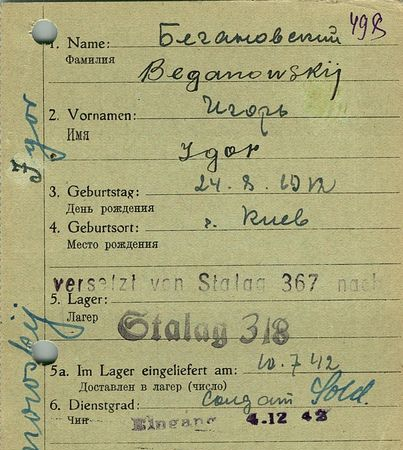 498
1. Name: Бегановский
Фамилия
Beganowskij
2. Vornamen: Игорь
Имя
Igor
3. Geburtstag: 24. 8. 1912
День рождения
4. Geburtsort: г. Киев
Место рождения
versetzt von Stalag 367 nach
5. Lager:
Лагер
Stalag 318
5a. Im Lager eingeliefert am: 10.7 42
Доставлен в лагер (число)
6. Dienstgrad: Солдат Sold.
Чин
Eingang 4.12 42
Igor